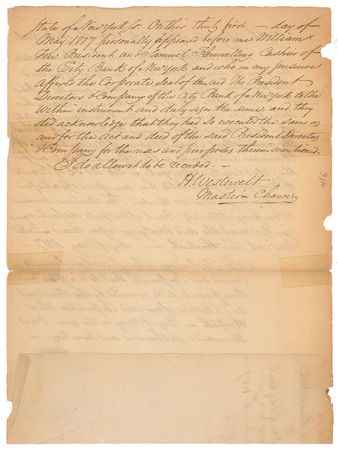 State of New York ss. On this thirty first — day of
May 1817 personally appeared before me William
Few President and Samuel Flewelling Cashier of
the City Bank of New York and who in my presence
affixed the Corporate Seal of the said The President
Directors & Company of the City Bank of New York to the
within instrument and duly sign the same and they
did acknowledge that they had so executed the same as
and for the Act and deed of the said President Directors
& Company for the uses and purposes therein mentioned.
I do allow it to be recorded. —
H. Westervelt
Master in Chancery